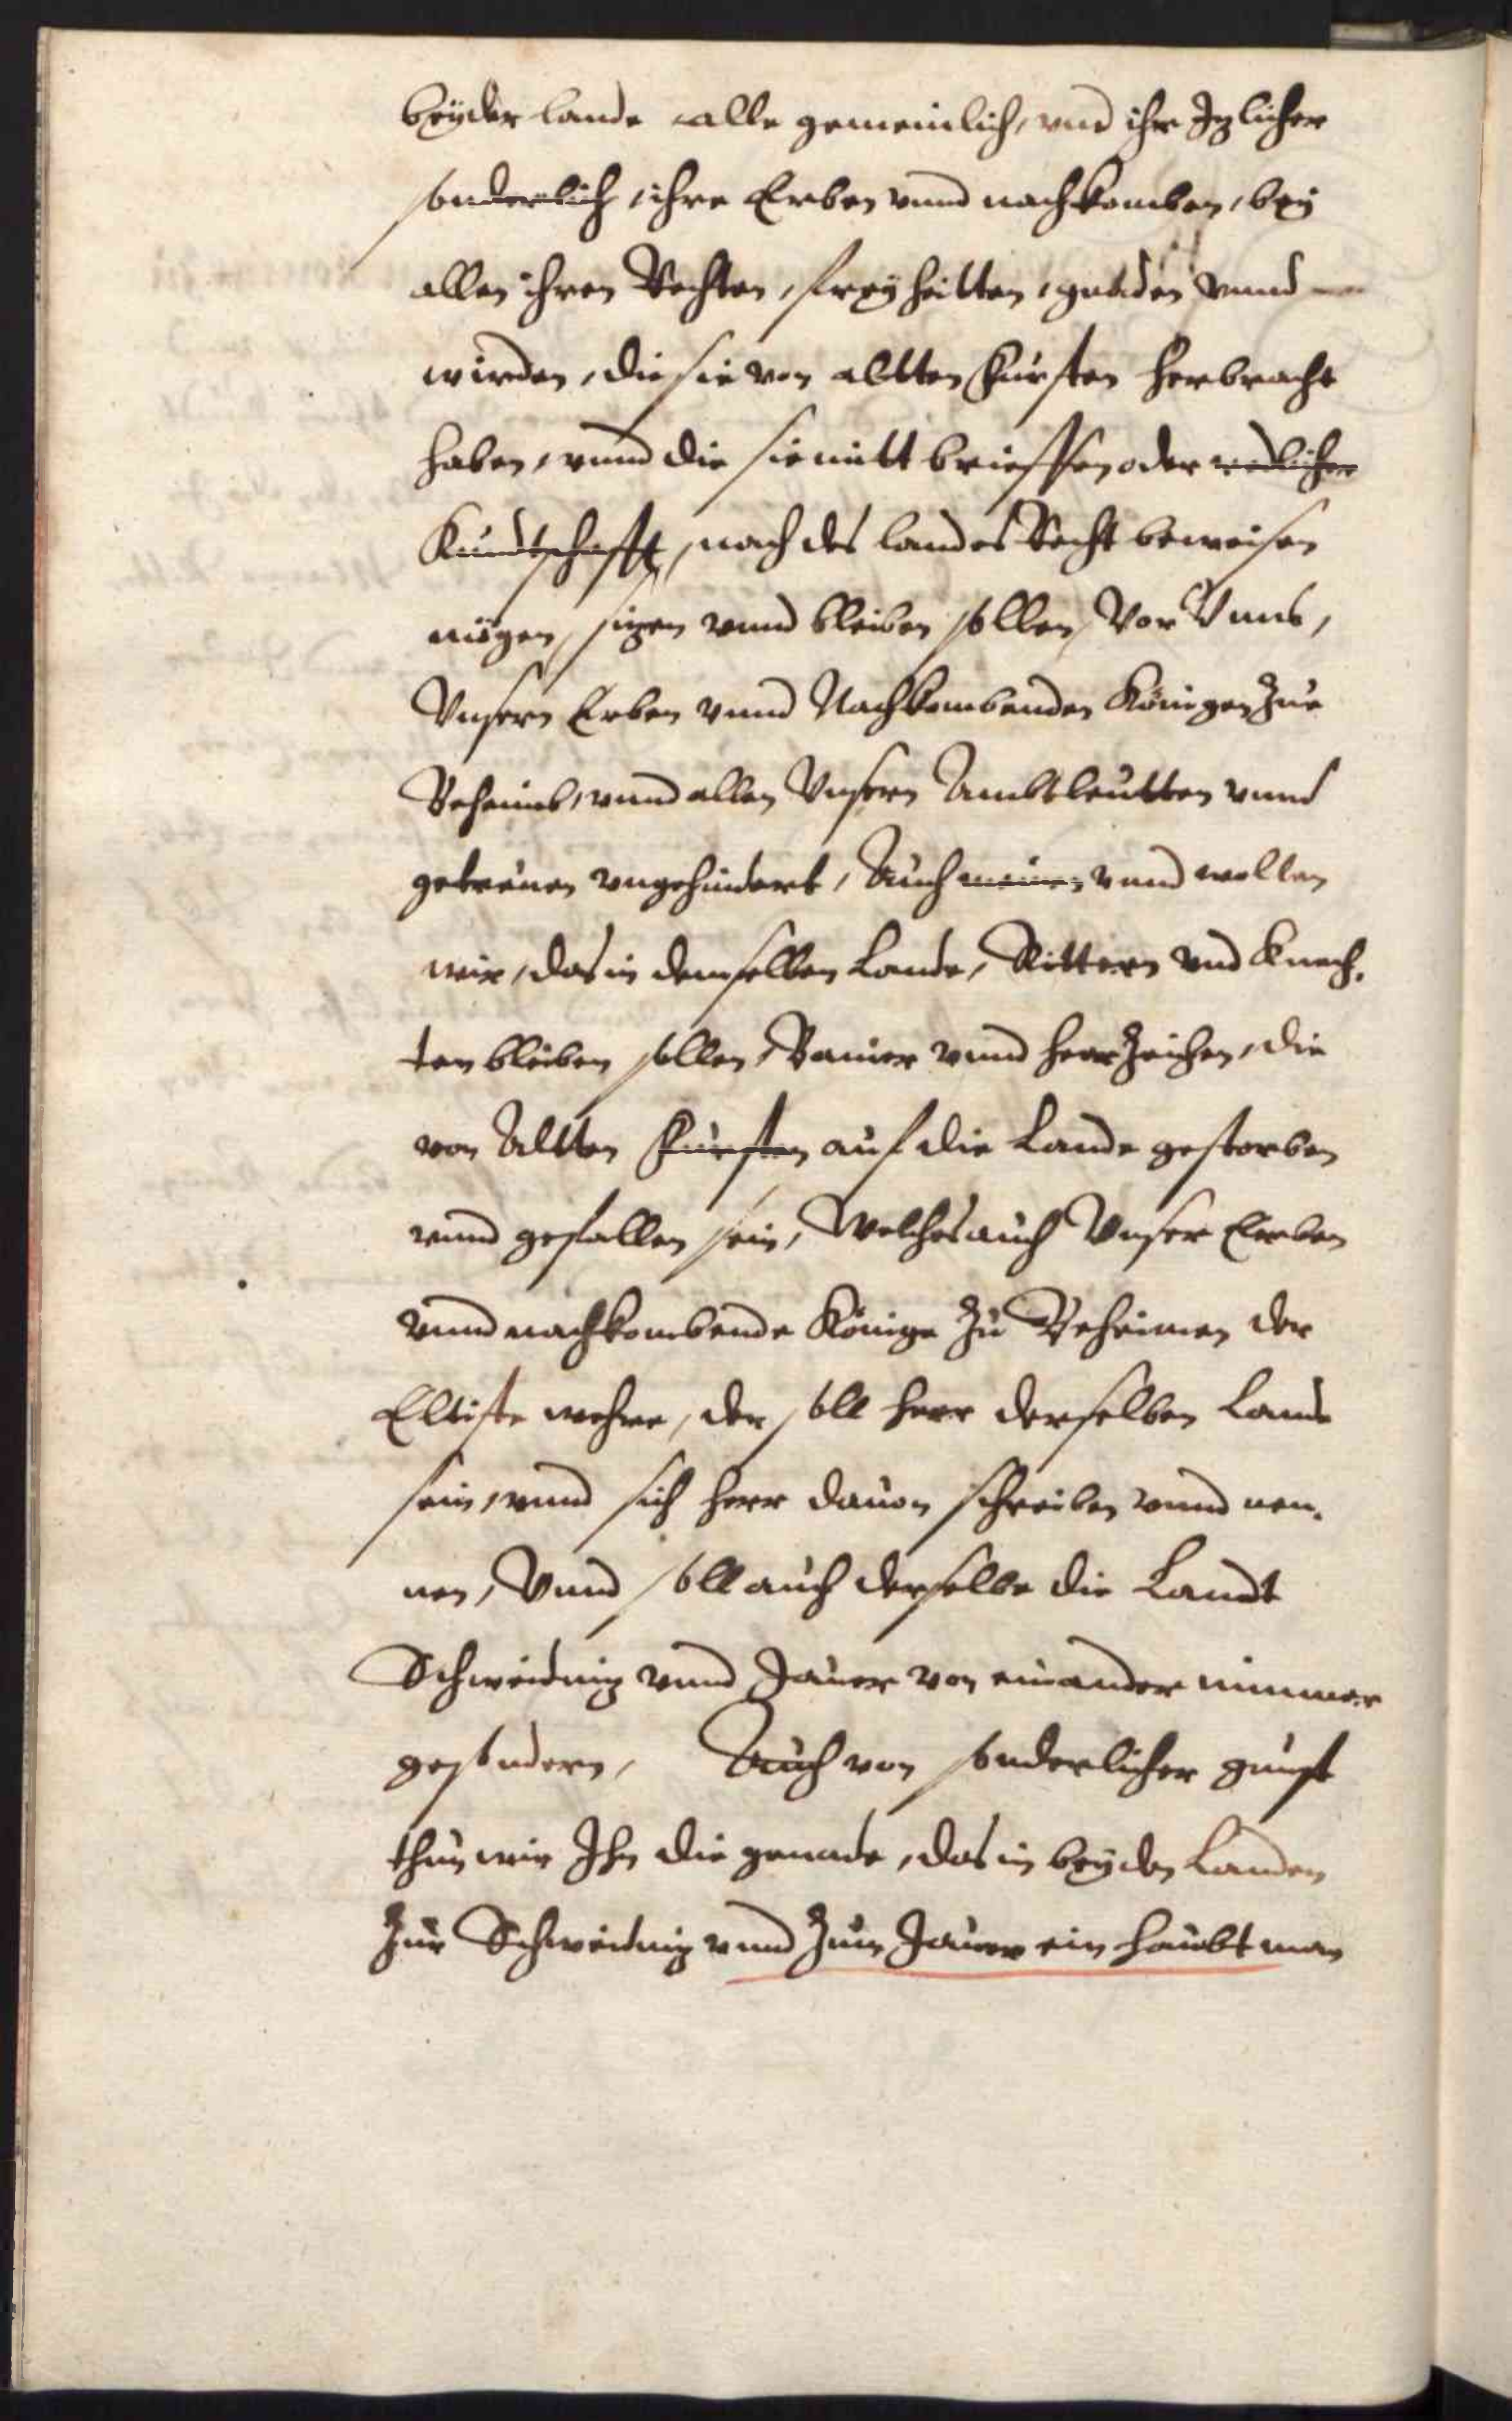 beyder lande alle gemeinlich, vnd ihr Izlicher
sonderlich, ihre Erben vnnd nachkomben, bey
allen ihren Rechten, freyheitten, gnaden vnnd
wirden, die sie von altten Fürsten herbracht
haben, vnnd die sie mitt brieffen oder redlicher
Kundtschafft, nach des landes Recht beweisen
mögen, sizen vnnd bleiben sollen, Vor Vnns,
Vnsern Erben vnnd Nachkombenden Königen Zue
Beheimb, vnnd allen Vnsern Ambtleutten vnnd
getreuen vngehindert, Auch meinen vnnd wollen
wir, das in demselben Lande, Rittern vnd Knech,
ten bleiben sollen, Banier vnnd heerZeichen, die
von Altten Fürsten auf die Lande gestorben
vnnd gefallen sein, Welches auch Vnser Erben
vnnd nachkombende Könige Zu Beheimen der
Elltiste wehre, der soll herr derselben Lande
sein, vnnd sich herr dauon schreiben vnnd nen,
nen, Vnnd soll auch derselbe die Landt
Schweidniz vnnd Jauer von einander nimmer
gesondern, Auch von sonderlicher gunst
thun wir Ihn die genade, das in beyden Landen
Zur Schweidniz vnnd Zum Jauer ein haubtman